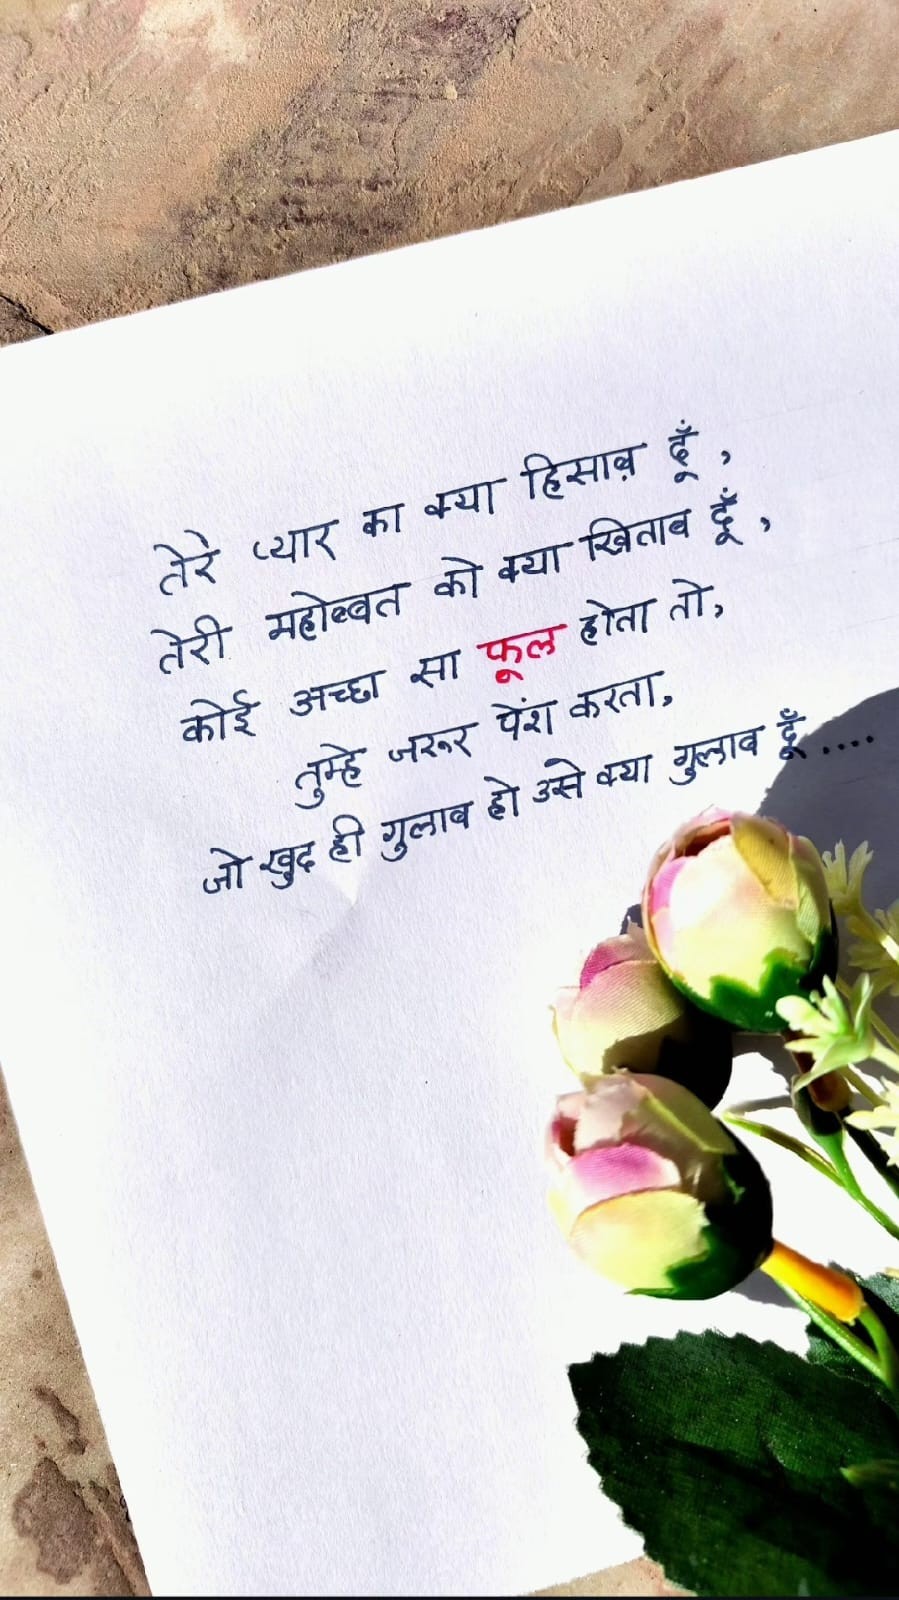 तेरे प्यार का क्या हिसाब़ दूँ ,
तेरी महोब्बत को क्या खिताब दूँ ,
कोई अच्छा सा फूल होता तो,
तुम्हे जरूर पेंश करता,
जो खुद ही गुलाब हो उसे क्या गुलाब दूँ ....